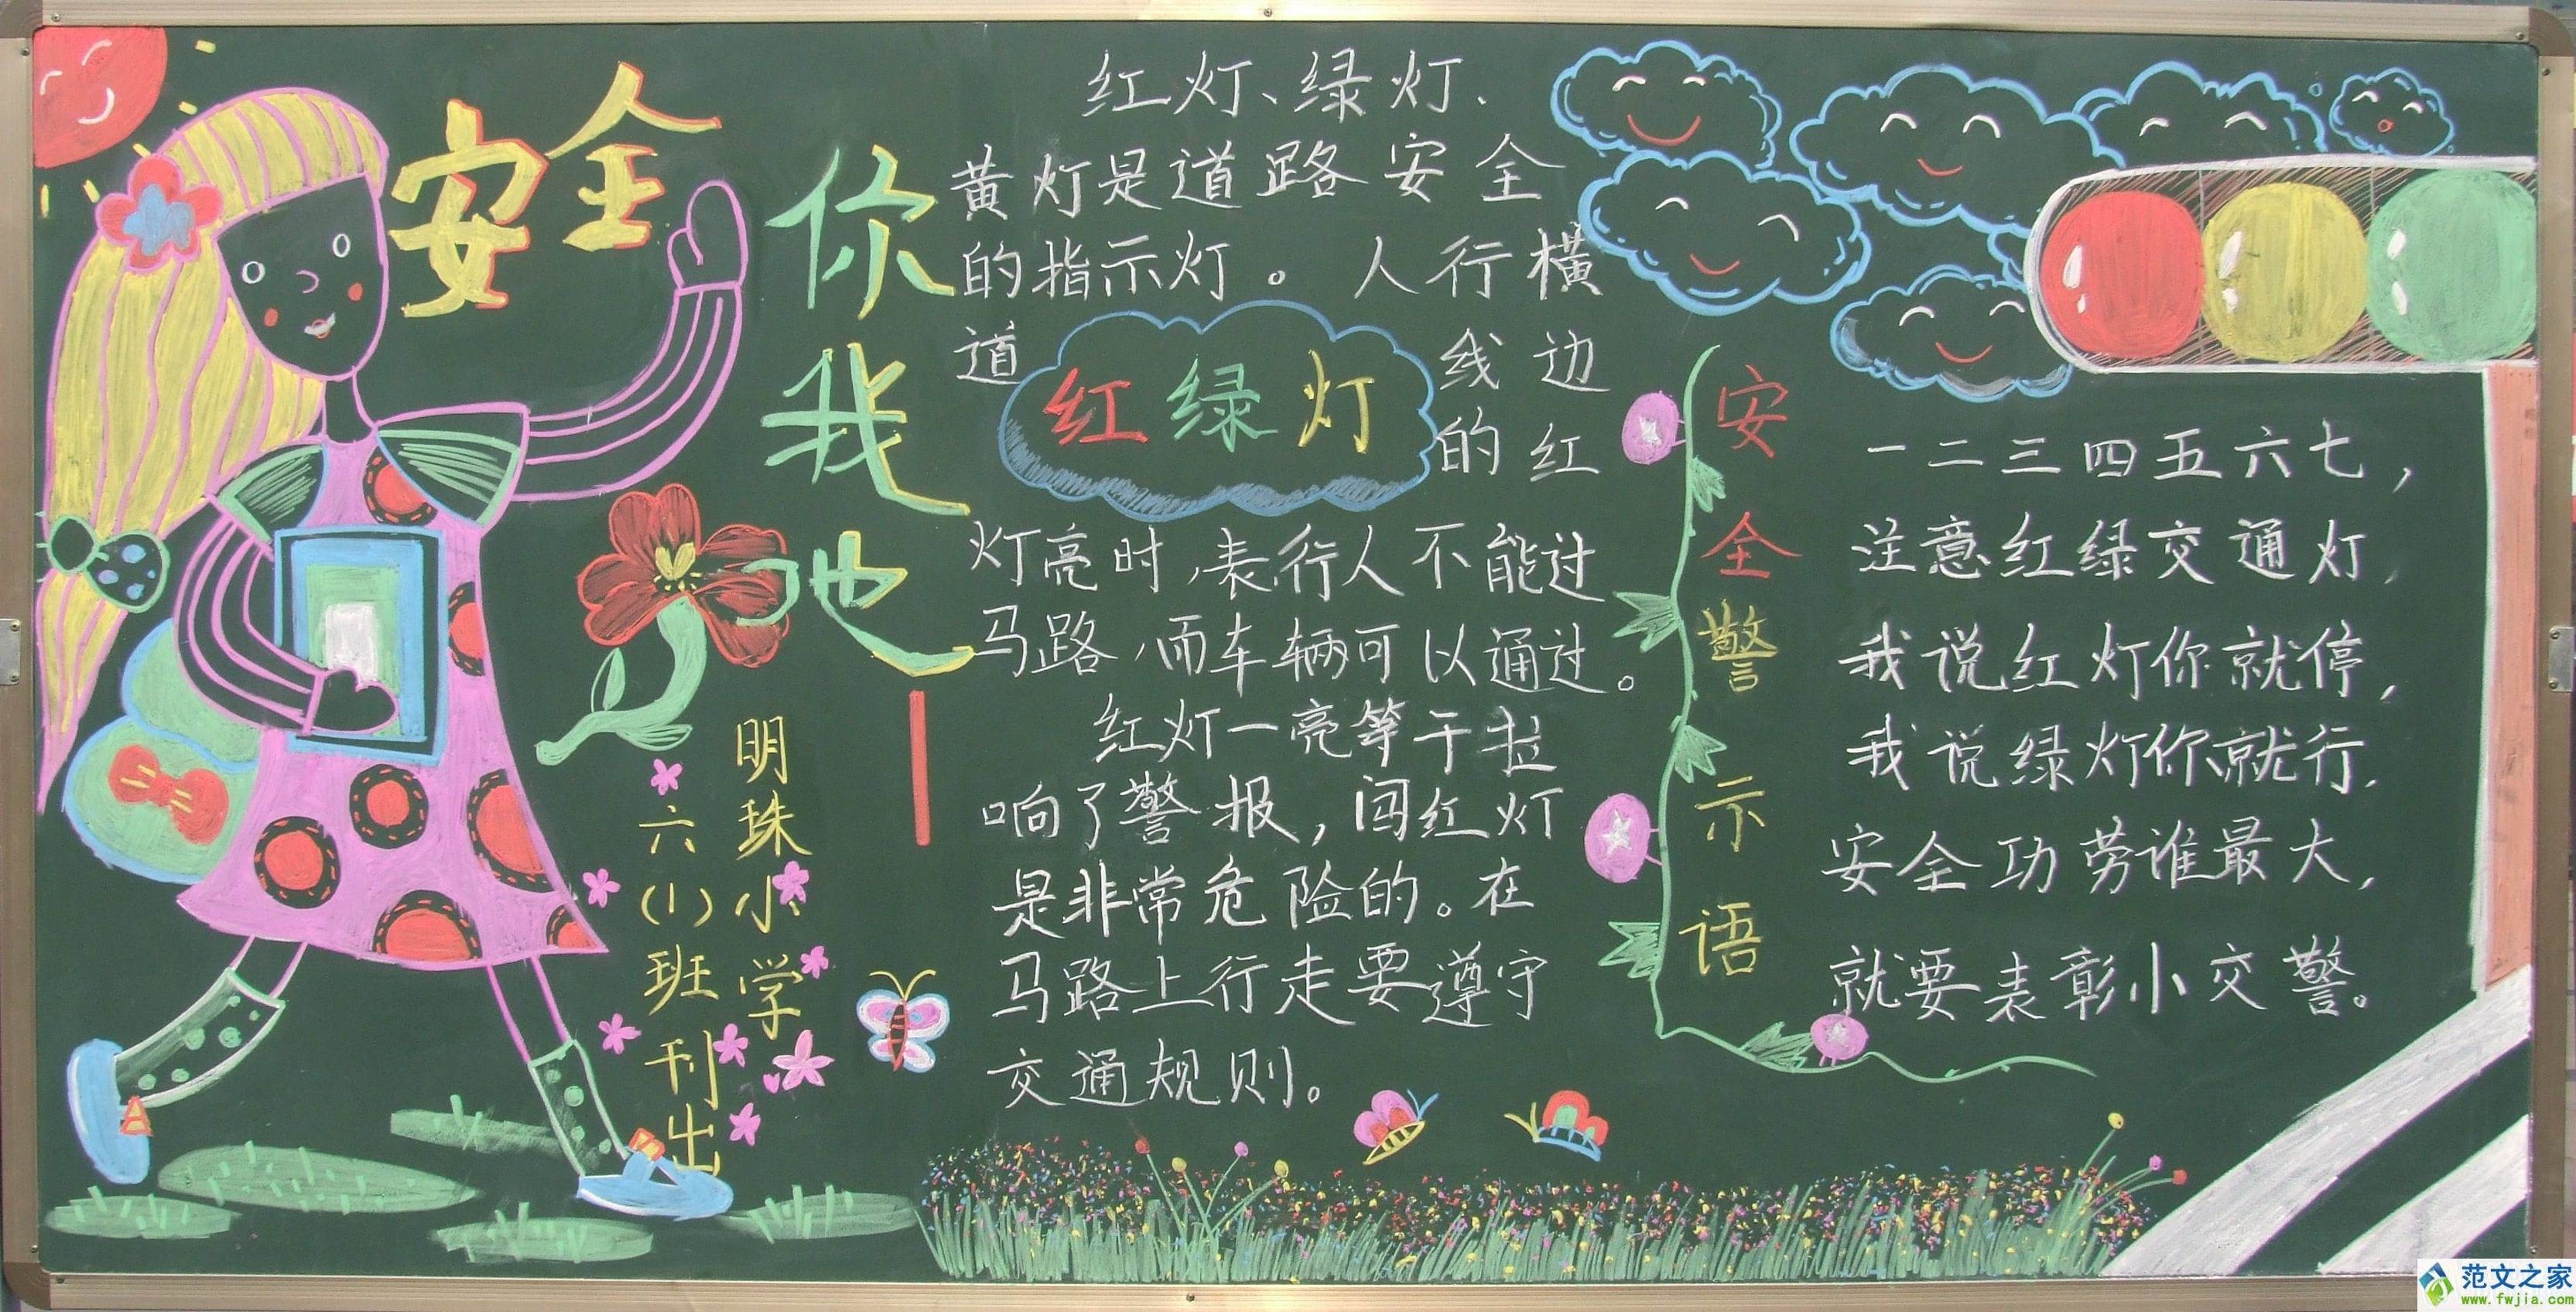 安全
你我他
明珠小学
六(1)班刊出
红灯、绿灯、
黄灯是道路安全
的指示灯。人行横
道 线边
红绿灯
的红
灯亮时,表行人不能过
马路,而车辆可以通过。
红灯一亮等于拉
响了警报,闯红灯
是非常危险的。在
马路上行走要遵守
交通规则。
安全警示语
一二三四五六七,
注意红绿交通灯,
我说红灯你就停,
我说绿灯你就行,
安全功劳谁最大,
就要表彰小交警。
范文之家
www.fwjia.com